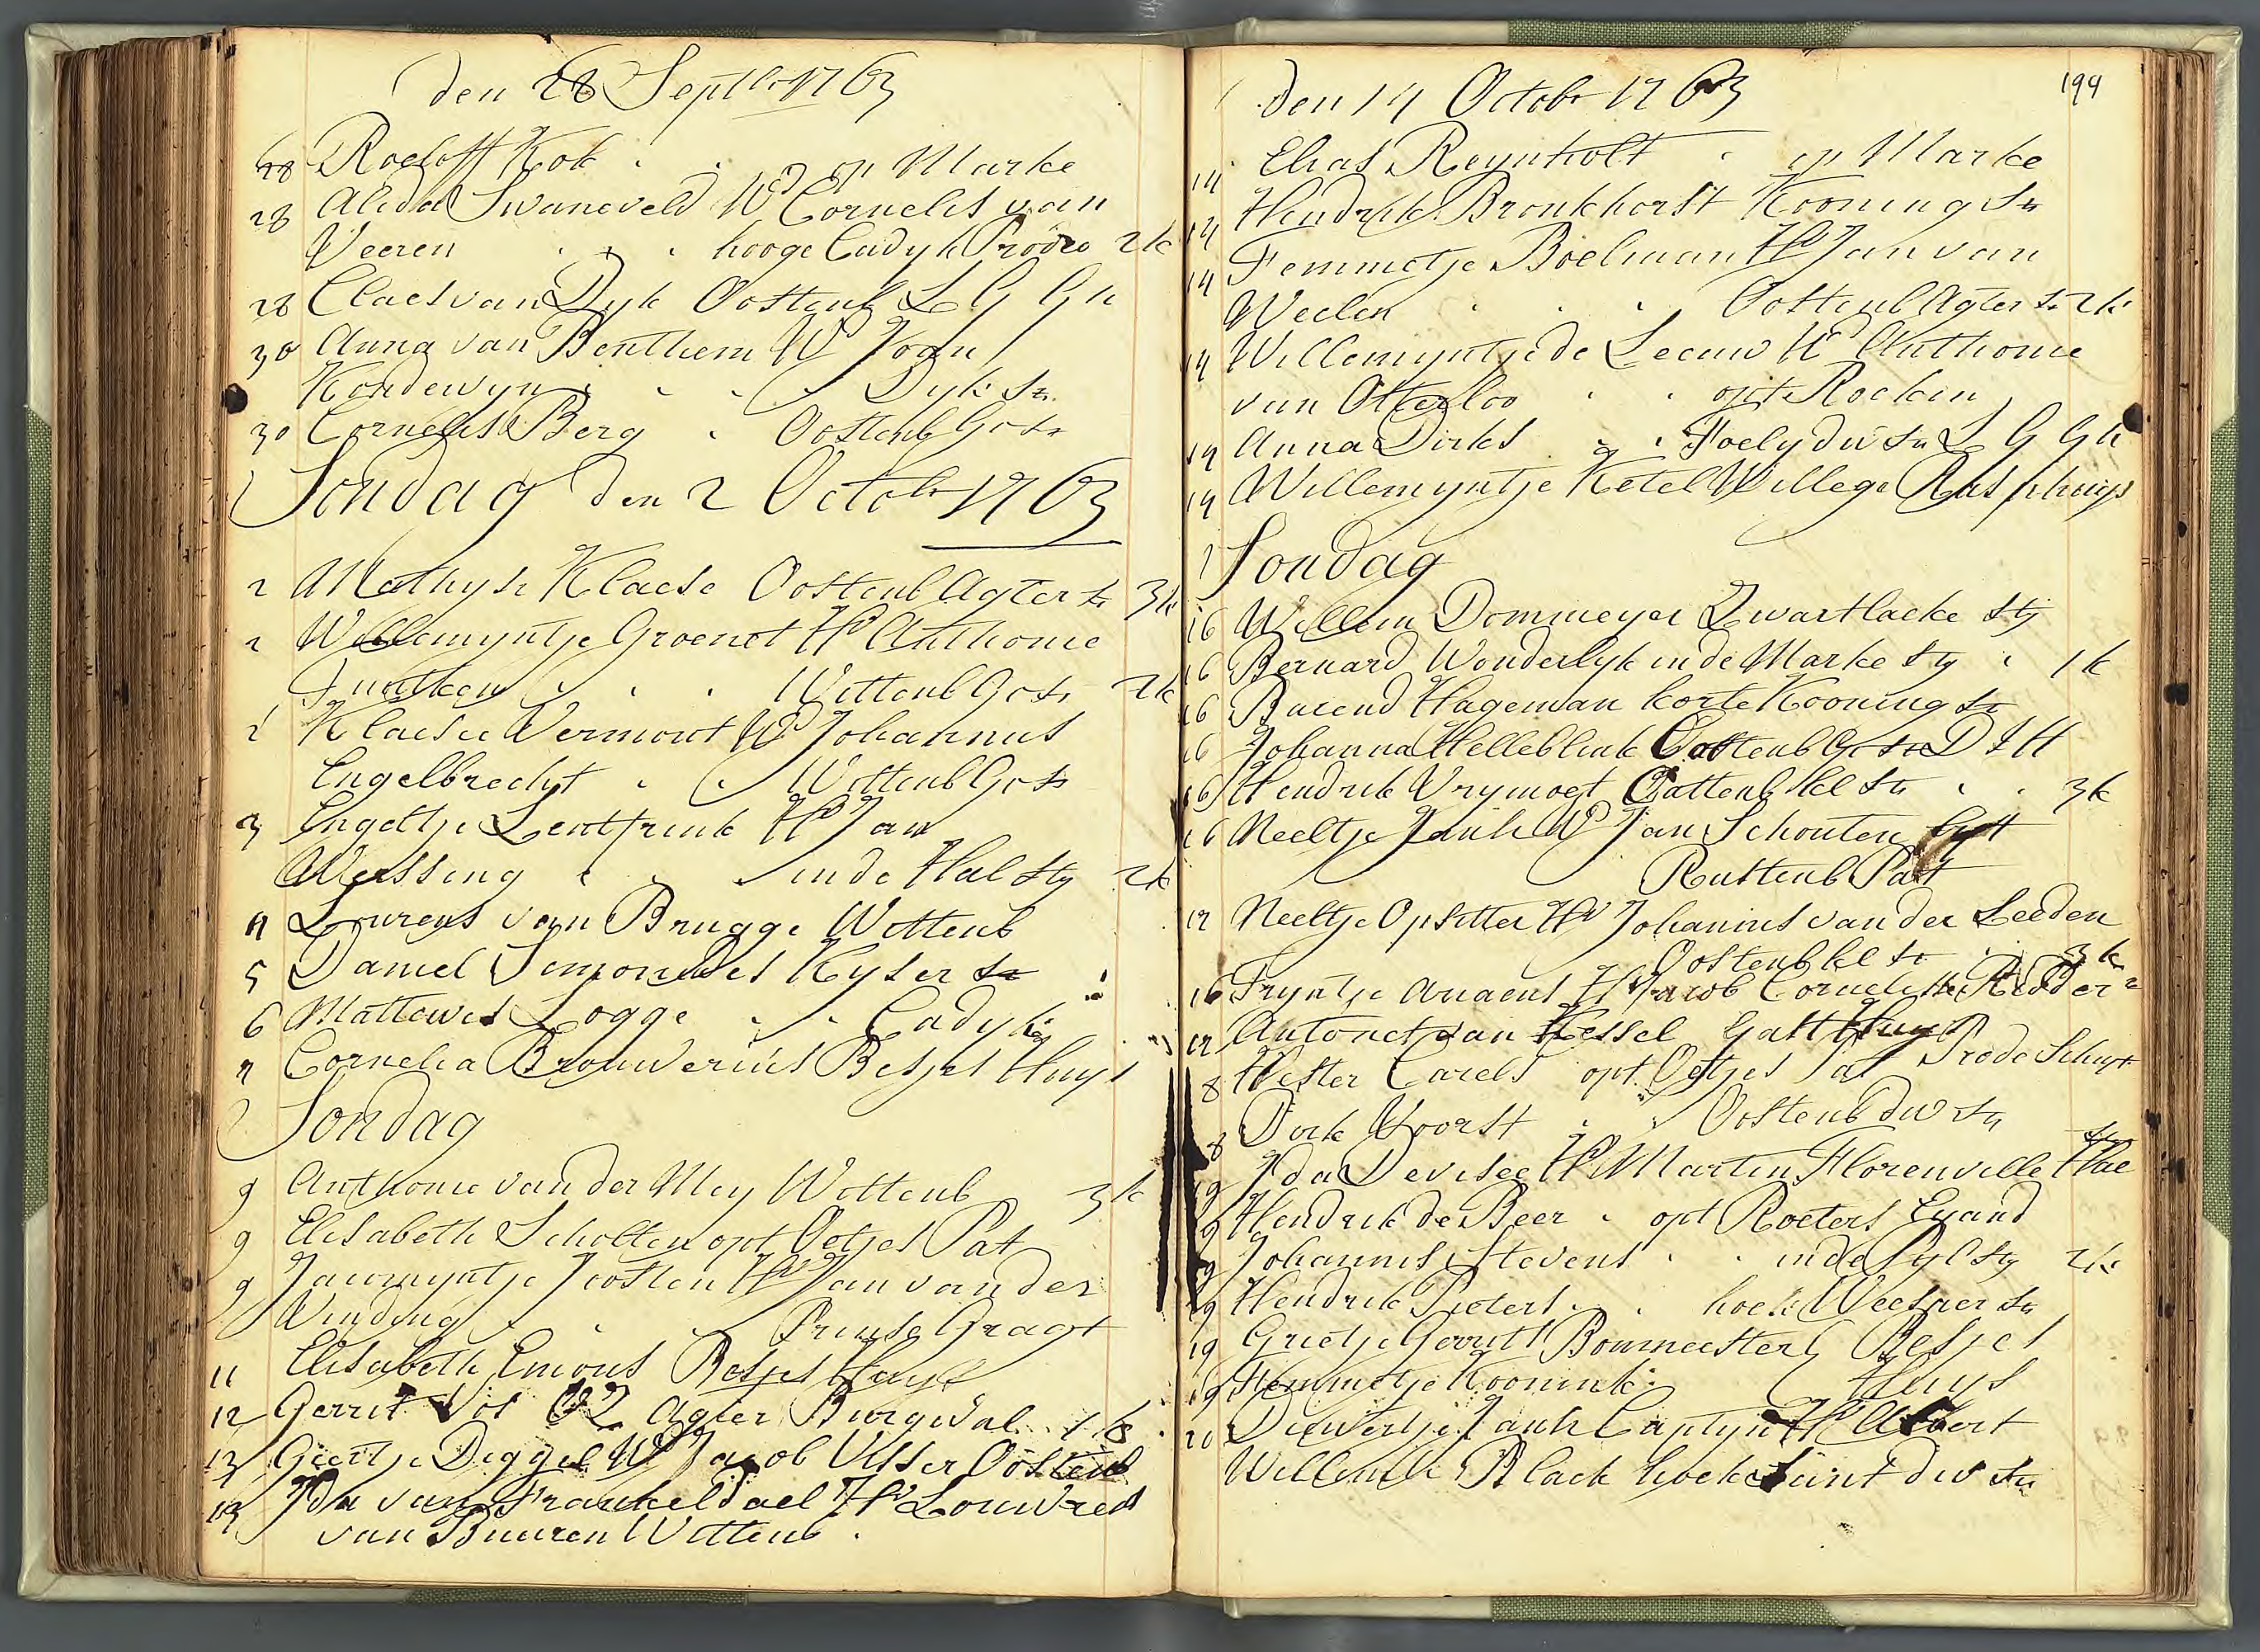 den 28 Septbr 1763
28 Roeloff Kok . . op Marke
28 Alida Swaneveld Wd Cornelis van
Veeren . . . hooge Cadyk Prode 2k
28 Claes van Dyk Oostenb L G G k
30 Anna van Benthem Wd Joan
Kondewyn . . . Dyk st
30 Cornelis Berg . Oostenb Gr st
Sondag den 2 Octobr 1763
2 Mathys Klaese Oostenb Agter st 3k
2 Willemyntje Groenet Hv Anthonie
. . . Wittenb Gr st 2k
2 Klaesie Vermont Wd Johannus
Engelbrecht . . Wittenb Gr st
3 Engeltje Lentfrink Hv Jan
Wessing . . in de Hal stg 2k
4 Lourens van Brugge Wittenb
5 Daniel Simonides Kyser st
6 Mattewis Logge . . Cadyk
7 Cornelia Brouwerius Besjes Huys
Sondag
9 Anthonie van der Mey Wittenb 3k
9 Elisabeth Scholten opt Oetjes Pat
9 Jannyntje Joosten Hv Jan van der
Winding . . . Prinse Gragt
11 Elisabeth Emous Besjes Huys
12 Gerrit Vos OZ Agter Burgwal 1k
13 Geertje Deggel Wd Jacob Visser Oostenb
13 Ida van Frankeldael Hv Louwres
van Buuren Wittenb .
194
den 14 Octobr 1763
14 Elias Reynholt . op Marke
14 Hendrik Bronkhorst Kooning st
14 Femmetje Boelman Hv Jan van
Weelen . . . Oostenb Agter st 2k
14 Willemyntje de Leeuw Hv Anthonie
van Otterloo . . opt Rockin
14 Anna Dirks . . Foely dw st L G G k
14 Willemyntje Ketel Willege Rasphuys
Sondag
16 Willem Dommeyer Zwartlaeke stg
16 Bernard Wonderlyk in de Marke stg . 1k
16 Barend Hageman korte Kooning st
16 Johanna Helleblink Oostenb Gr st D S H
16 Hendrik Vrymoet Cattenb kl st . . 3k
16 Neeltje Jansz Wd Jan Schouten
Ruttenb Pat
17 Neeltje Opsitter Hv Johannis van der Leeden
Oostenb kl st . . 3k
16 Tryntje Anaens Hv Jacob Cornelisse Redder
17 Antonet van Kessel Gast Huys
8 Hester Carels opt Oetjes Pat Prode Schuyt
8 Dirk Voorst . . Oostenb dw st
19 Ida Devisee Hv Martin Florenville Hae
st
19 Hendrik de Beer . opt Roeters Eyand
19 Johannis Stevens . . in de Pyl stg 2k
19 Hendrik Pieters . . hoek Weesper st
19 Grietje Gerrits Boumeesters Besjes
19 Femmetje Koonink . Huys
20 Diewertje Jansz Captyn Hv Albert
Willemse Black hoek Sint dw st